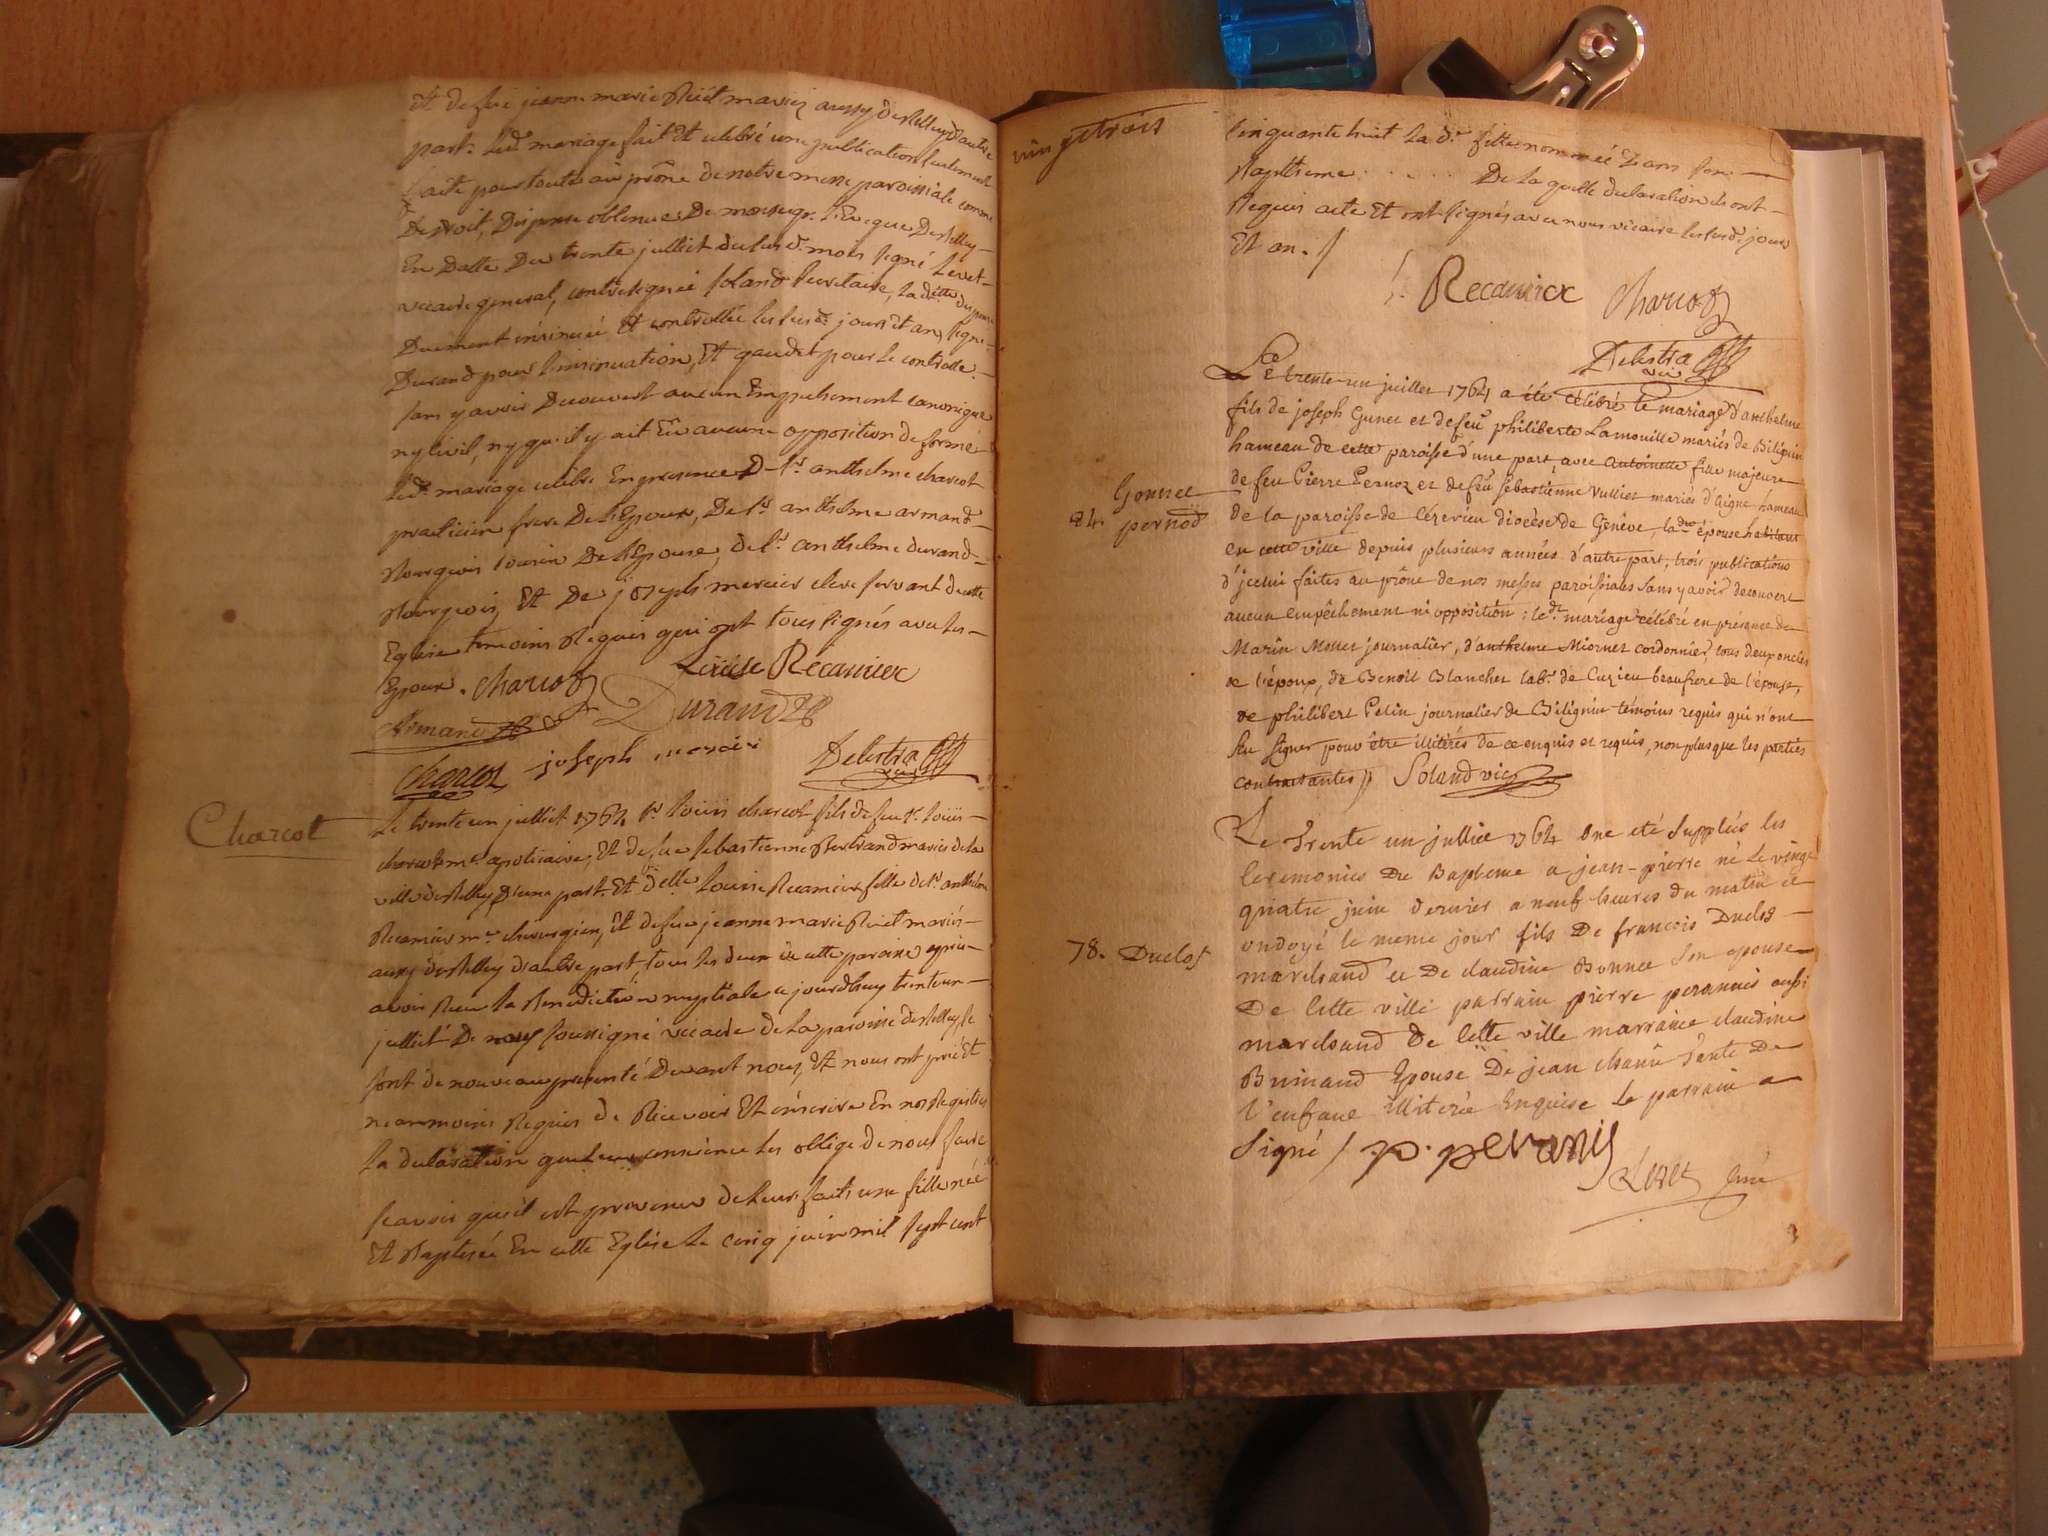 Et de feüe jeanne marie Rivet mariez aussy de Belley d'autre
part. led. mariage fait Et celebré une publication seulement
faite pour toutes au prône de notre messe paroissiale comme
De droit, Dispense obtenue De monseigr. l'Eveque De Belley
En Datte Du trente juilliet du susd. mois signé Levet
vicaire general, contresignée soland secretaire, la ditte dispense
Duement insinuée Et controllée les susd. jours Et an, signé
Durand pour l'insinuation, Et gaudet pour le controlle.
sans y avoir Decouvert aucun Empechement canonique
ny civil, ny qu'il y ait Eû aucune opposition de formé
led. mariage celebré En presence De sr. anthelme charcot
praticien frere De l'Epoux, De sr. anthelme armand
Bourgeois cousin De l'Epouse, de sr. anthelme durand
Bourgeois, Et De joseph mercier clerc servant de cette
Eglise temoins Requis qui ont tous signés avec les
Epoux. Charcot Louise Recamier
Armand Durand
Charcot joseph mercier Delestra vic
Charcot
Le trente un julliet 1764 sr. Louis charcot fils de feu sr. Louis
charcot me. apoticaire, Et de feüe sebastienne Bertrand mariés de la
ville de Belley D'une part Et delle Louise Recamier fille de sr. anthelme
Recamier me. chirurgien, Et de feüe jeanne marie Rivet mariés
aussy de Belley d'autre part, tous les deux de cette paroisse après
avoir Reçu la Benediction nuptiale ce jourdhuy trente un
julliet De nous soussigné vicaire de la paroisse de Belley se
sont de nouveau presenté Devant nous, Et nous ont prié Et
neanmoins Requis de Recevoir Et inscrire En nos Registres
la declaration que leur conscience les oblige de nous faire
scavoir qu'il est provenu de leurs faits une fille née
Et Baptisée En cette Eglise le cinq juin mil sept cent
vingt trois
cinquante huit la de. fille nommée Dans son
Baptême ..... De la quelle declaration ils ont
Requis acte Et ont signés avec nous vicaire les susd. jours
Et an. /
L. Recamier Charcot
Delestra vic
Le trente-un juillet 1764 a été célébré le mariage d'anthelme
fils de joseph Gonet et de feu philiberte Lamouille mariés de Bilignin
hameau de cette paroisse d'une part, avec Antoinette fille majeure
Gonnet
84. pernod
de feu Pierre Pernoz et de feu sébastienne Vulliet mariés d'Aigne hameau
de la paroisse de Cézerieu diocèse de Genêve, lade. épouse habitant
en cette ville depuis plusieurs années d'autre part, trois publications
d'jcelui faites au prône de nos messes paroissiales sans y avoir decouvert
aucun empêchement ni opposition; led. mariage célébré en présence de
Marin Mollet journalier, d'anthelme Miornet cordonnier, tous deux oncles
de l'époux, de Benoit Blanchet labr. de Cuzieu beaufrere de l'épouse,
de philibert Petin journalier de Bilignin témoins requis qui n'ont
sçu signer pour être illitérés de ce enquis et requis, non plus que les parties
contractantes // Soland vic
Le Trente un julliet 1764 ont eté Supplées les
Ceremonies Du Bapteme a jean-pierre né le vingt
quatre juin dernier a neuf heures du matin et
ondoyé le meme jour fils De francois Duclos
78. Duclos
marchand et De claudine Bonnet son epouse
De cette ville parrain pierre perannis aussi
marchand De cette ville marraine claudine
Brunand Epouse De jean chanu Tante De
l'enfant illiterée Enquise le parrain a
signé / p. peranis
Levet Curé